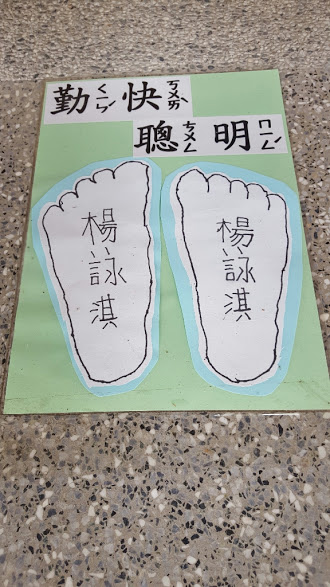 勤ㄑㄧㄣˊ快ㄎㄨㄞˋ
聰ㄘㄨㄥ明ㄇㄧㄥˊ
楊詠淇
楊詠淇